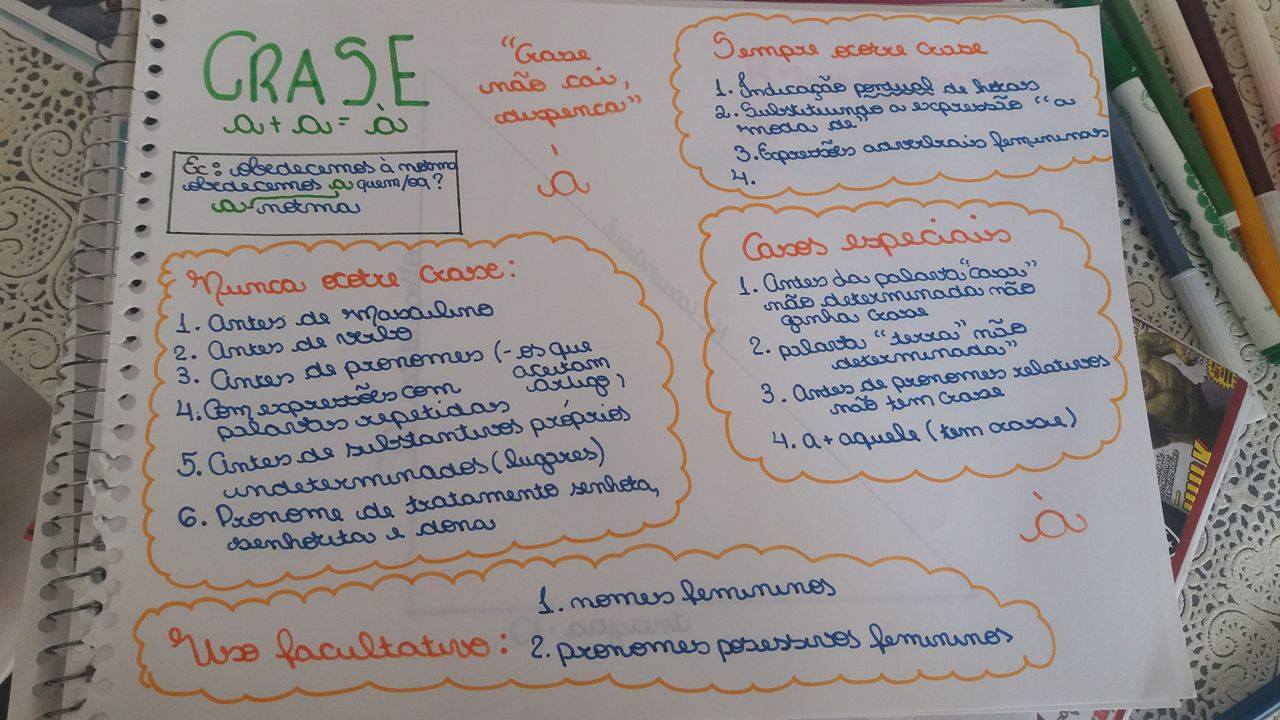 CRASE
a + a = à
Ex: obedecemos à norma
obedecemos a quem/oq?
a norma
"Crase
não cai,
despenca"
à
Sempre ocorre crase
1. Indicação pontual de horas
2. Substituindo a expressão "a
moda de"
3. Expressões adverbiais femininas
4.
Nunca ocorre crase:
1. Antes de masculino
2. Antes de verbo
3. Antes de pronomes (- os que
aceitam
artigo)
4. Com expressões com
palavras repetidas
5. Antes de substantivos próprios
indeterminados (lugares)
6. Pronome de tratamento senhora,
senhorita e dona
Casos especiais
1. Antes da palavra "casa"
não determinada não
ganha crase
2. palavra "terra" não
determinada"
3. Antes de pronomes relativos
não tem crase
4. a + aquele (tem crase)
à
Uso facultativo:
1. nomes femininos
2. pronomes possessivos femininos
HULK